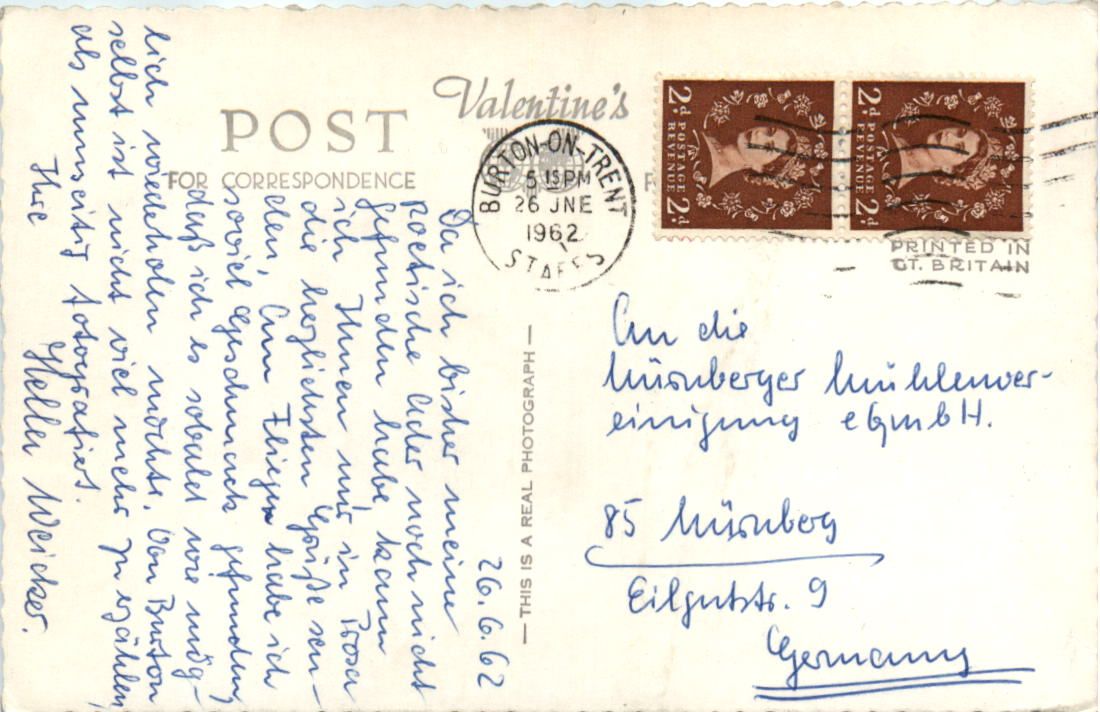 POST
Valentine's
FOR CORRESPONDENCE
BURTON-ON-TRENT
5.15 PM
26 JNE
1962
STAFFS
2d POSTAGE REVENUE 2d
2d POSTAGE REVENUE 2d
PRINTED IN
GT. BRITAIN
26.6.62
Da ich bisher meine
poetische Ader noch nicht
gefunden habe, kann
ich Ihnen nur in Prosa
die herzlichsten Grüße sen-
den. Am Fliegen habe ich
soviel Geschmack gefunden,
daß ich es sobald wie mög-
lich wiederholen möchte. Von Burton
selbst ist nicht viel mehr zu erzählen,
als umseitig fotografiert.
Ihre
Hella Weicker.
— THIS IS A REAL PHOTOGRAPH —
An die
Nürnberger Mühlenver-
einigung eGmbH.
85 Nürnberg
Eilgutstr. 9
Germany